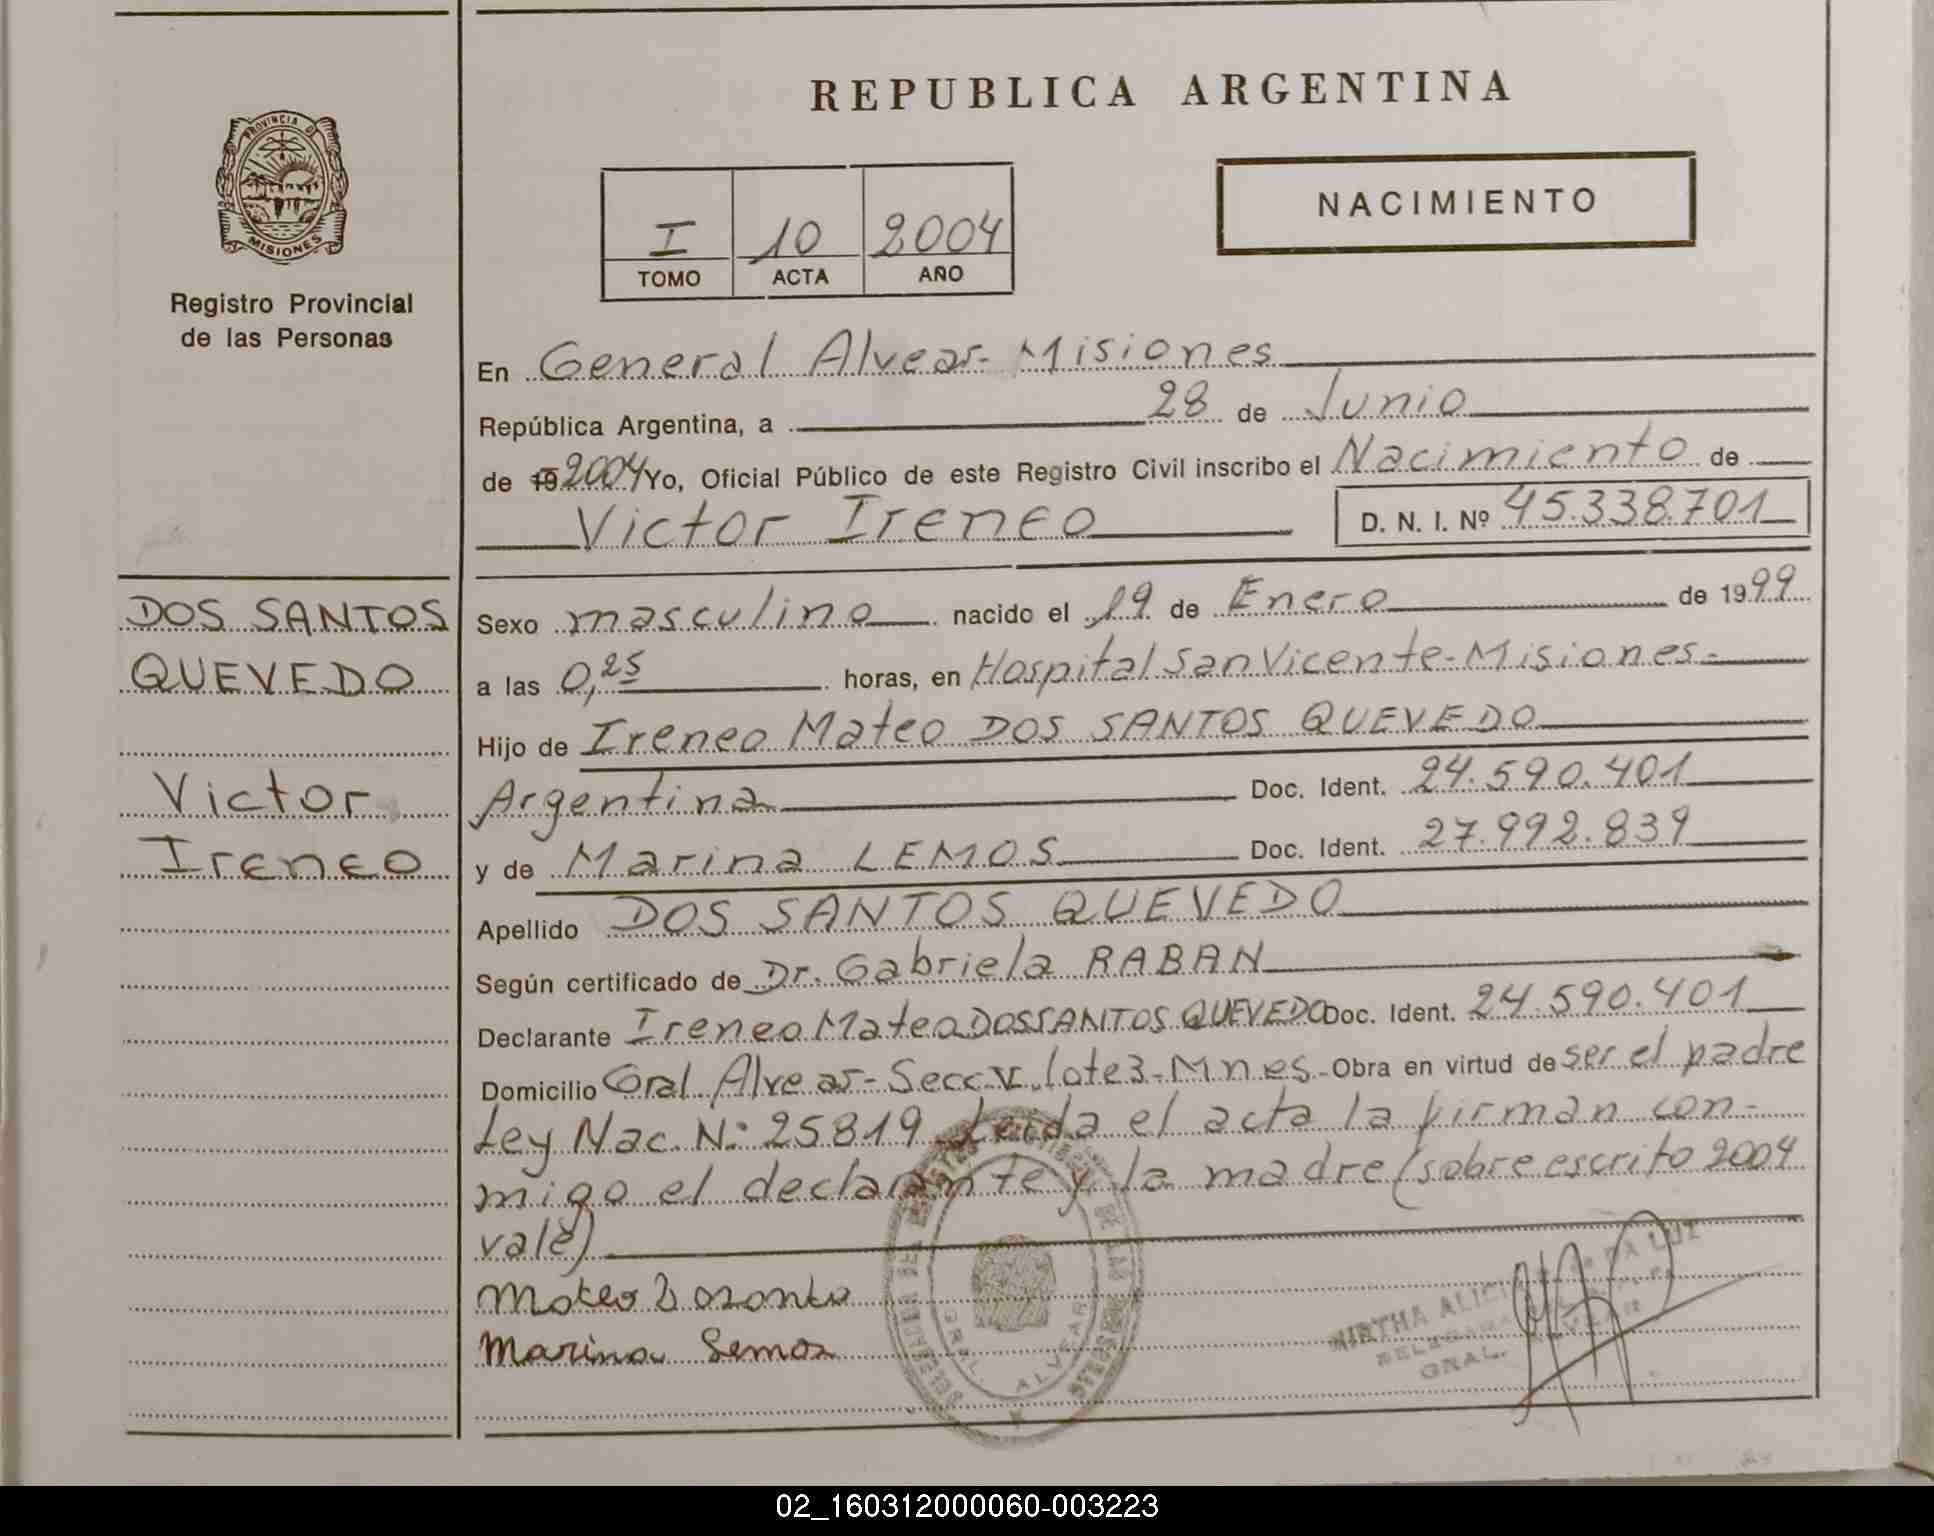 REPUBLICA ARGENTINA
PROVINCIA DE
MISIONES
Registro Provincial
de las Personas
I 10 2004
TOMO ACTA AÑO
NACIMIENTO
En General Alvear-Misiones
República Argentina, a 28 de Junio
de 19 2004 Yo, Oficial Público de este Registro Civil inscribo el Nacimiento de
Victor Ireneo D. N. I. Nº 45.338.701
DOS SANTOS
QUEVEDO
Victor
Ireneo
Sexo masculino nacido el 19 de Enero de 1999
a las 0,25 horas, en Hospital San Vicente-Misiones-
Hijo de Ireneo Mateo DOS SANTOS QUEVEDO
Argentina Doc. Ident. 24.590.401
y de Marina LEMOS Doc. Ident. 27.992.839
Apellido DOS SANTOS QUEVEDO
Según certificado de Dr. Gabriela RABAN
Declarante Ireneo Mateo DOS SANTOS QUEVEDO Doc. Ident. 24.590.401
Domicilio Gral. Alvear-Secc V. lote 3-Mnes. Obra en virtud de ser el padre
Ley Nac. N: 25819. Leida el acta la firman con-
migo el declarante y la madre (sobre escrito 2004
vale)
Mateo
Marina Lemos
GRAL. ALVEAR
MIRTHA ALICIA DA LUZ
GRAL.
02_160312000060-003223